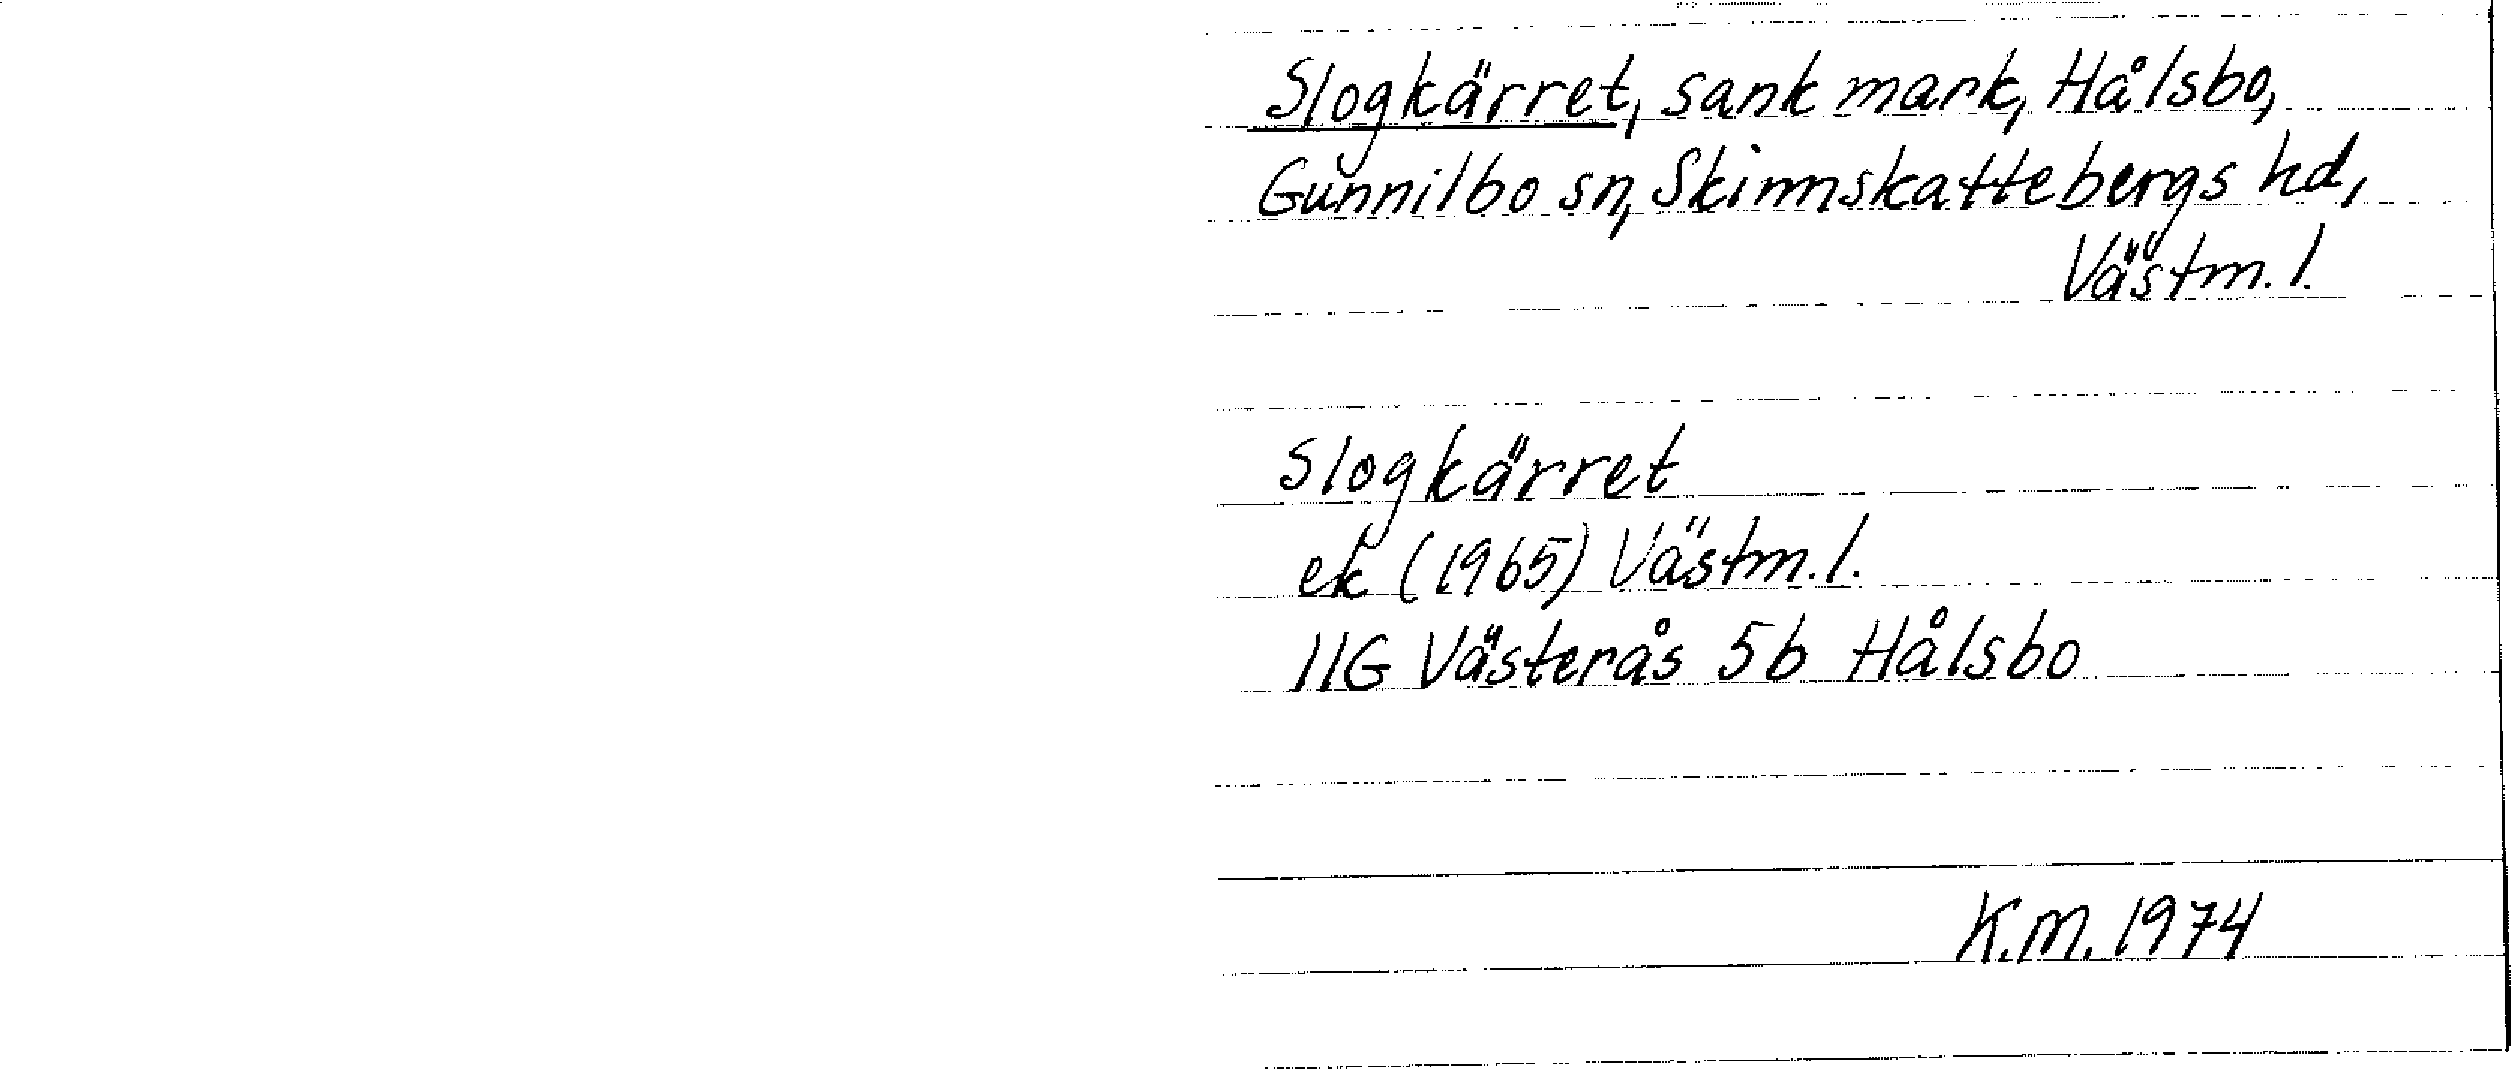 Slogkärret, sank mark, Hålsbo,
Gunnilbo sn, Skinnskattebergs hd,
Västm. l.
Slogkärret
ek (1965) Västm. l.
11G Västerås 5b Hålsbo
K.M. 1974